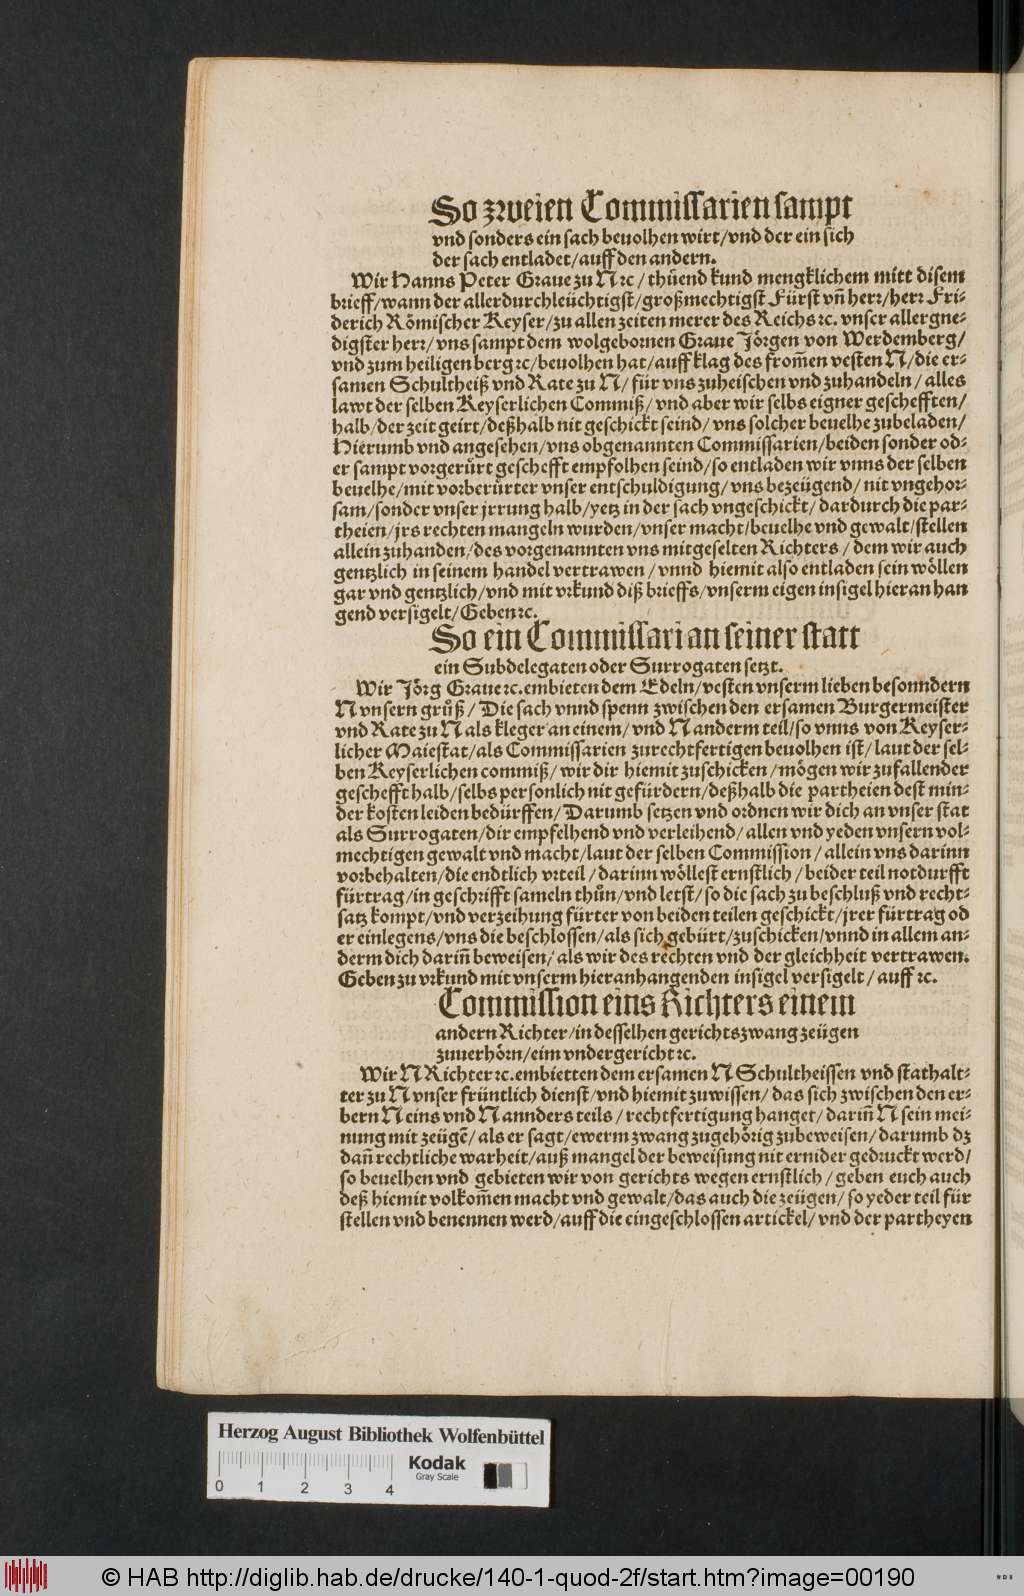 So zweien Commissarien sampt
vnd sonders ein sach beuolhen wirt/vnd der ein sich
der sach entladet/auff den andern.
Wir Hanns Peter Graue zu N ꝛc/ thüend kund mengklichem mitt disem
brieff/wann der allerdurchleüchtigst/großmechtigst Fürst vñ herꝛ/herꝛ Fri-
derich Römischer Keyser/zu allen zeiten merer des Reichs ꝛc. vnser allergne-
digster herꝛ/vns sampt dem wolgebornen Graue Jörgen von Werdemberg/
vnd zum heiligen berg ꝛc/beuolhen hat/auff klag des from̃en vesten N/die er-
samen Schultheiß vnd Rate zu N/ für vns zuheischen vnd zuhandeln/ alles
lawt der selben Keyserlichen Commiß/ vnd aber wir selbs eigner geschefften/
halb/der zeit geirt/deßhalb nit geschickt seind/ vns solcher beuelhe zubeladen/
Hierumb vnd angesehen/vns obgenannten Commissarien/beiden sonder od-
er sampt vorgerürt geschefft empfolhen seind/so entladen wir vnns der selben
beuelhe/mit vorberürter vnser entschuldigung/vns bezeügend/ nit vngehor-
sam/sonder vnser jrrung halb/yetz in der sach vngeschickt/ dardurch die par-
theien/jrs rechten mangeln wurden/vnser macht/beuelhe vnd gewalt/stellen
allein zuhanden/des vorgenannten vns mitgeselten Richters/ dem wir auch
gentzlich in seinem handel vertrawen/ vnnd hiemit also entladen sein wöllen
gar vnd gentzlich/vnd mit vrkund diß brieffs/vnserm eigen insigel hieran han
gend versigelt/Geben ꝛc.
So ein Commissari an seiner statt
ein Subdelegaten oder Surrogaten setzt.
Wir Jörg Graue ꝛc. embieten dem Edeln/vesten vnserm lieben besonndern
N vnsern grůß/ Die sach vnnd spenn zwischen den ersamen Burgermeister
vnd Rate zu N als kleger an einem/ vnd N anderm teil/so vnns von Keyser-
licher Maiestat/als Commissarien zurechtfertigen beuolhen ist/laut der sel-
ben Keyserlichen commiß/ wir dir hiemit zuschicken/mögen wir zufallender
geschefft halb/selbs personlich nit gefürdern/deßhalb die partheien dest min-
der kosten leiden bedürffen/Darumb setzen vnd ordnen wir dich an vnser stat
als Surrogaten/dir empfelhend vnd verleihend/ allen vnd yeden vnsern vol-
mechtigen gewalt vnd macht/laut der selben Commission/ allein vns darinn
vorbehalten/die endtlich vrteil/ darinn wöllest ernstlich/ beider teil notdurfft
fürtrag/in geschrifft sameln thůn/vnd letst/so die sach zu beschluß vnd recht-
satz kompt/vnd verzeihung fürter von beiden teilen geschickt/jrer fürtrag od
er einlegens/vns die beschlossen/als sich gebürt/zuschicken/vnnd in allem an-
derm dich dariñ beweisen/als wir des rechten vnd der gleichheit vertrawen.
Geben zu vrkund mit vnserm hieranhangenden insigel versigelt/ auff ꝛc.
Commission eins Richters einem
andern Richter/in desselhen gerichtszwang zeügen
zuuerhörn/eim vndergericht ꝛc.
Wir N Richter ꝛc. embietten dem ersamen N Schultheissen vnd stathalt-
ter zu N vnser früntlich dienst/vnd hiemit zuwissen/ das sich zwischen den er-
bern N eins vnd N annders teils/ rechtfertigung hanget/ dariñ N sein mei-
nung mit zeügẽ/als er sagt/ewerm zwang zugehörig zubeweisen/ darumb dz
dañ rechtliche warheit/auß mangel der beweisung nit ernider gedruckt werd/
so beuelhen vnd gebieten wir von gerichts wegen ernstlich/ geben euch auch
deß hiemit volkom̃en macht vnd gewalt/das auch die zeügen/ so yeder teil für
stellen vnd benennen werd/auff die eingeschlossen artickel/ vnd der partheyen
Herzog August Bibliothek Wolfenbüttel
Kodak
Gray Scale
0 1 2 3 4
© HAB http://diglib.hab.de/drucke/140-1-quod-2f/start.htm?image=00190